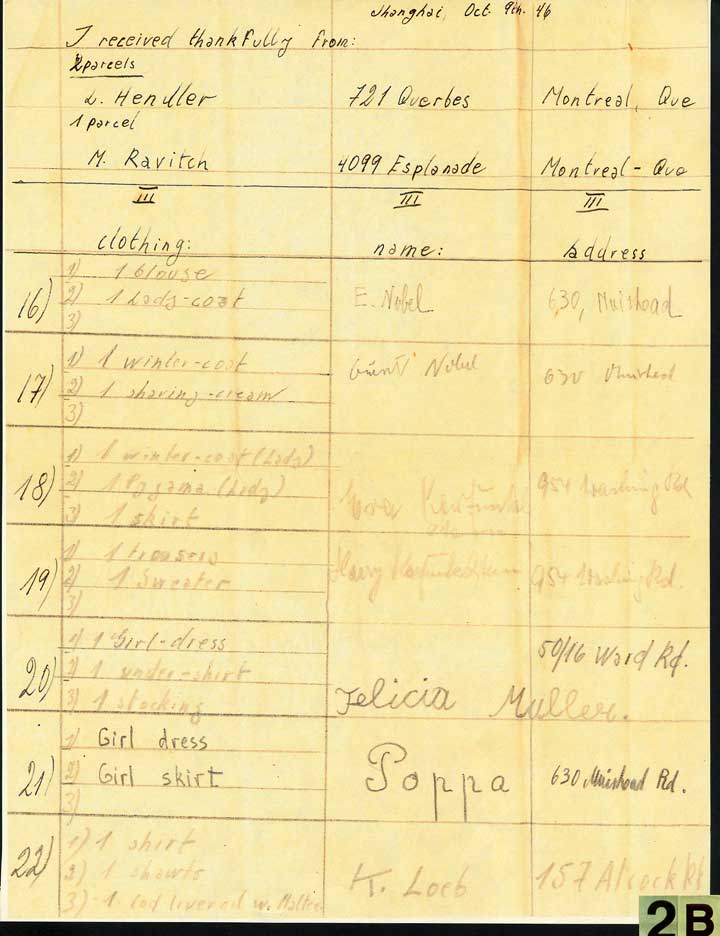 Shanghai, Oct. 9th. 46
I received thankfully from:
2 parcels
L. Hendler 721 Querbes Montreal, Que
1 parcel
M. Ravitch 4099 Esplanade Montreal - Que
III III III
clothing: name: address
16) 1) 1 blouse
2) 1 Lady-coat E. Nobel 630, Muirhead
3)
17) 1) 1 winter-coat Nobel 630
2) 1 shaving-cream
3)
18) 1) 1 winter-coat (Lady)
2) 1 Pyjama (Lady) 954 Rd
3) 1 skirt
19) 1) 1 trousers
2) 1 Sweater Harry 954 Rd.
3)
20) 1) 1 Girl-dress 50/16 Ward Rd.
2) 1 under-shirt
3) 1 stocking Felicia Muller.
21) 1) Girl dress
2) Girl skirt Poppa 630 Muirhead Rd.
3)
22) 1) 1 shirt
2) 1 shawts K. Loeb 157 Alcock Rd
3) 1 w.
2B